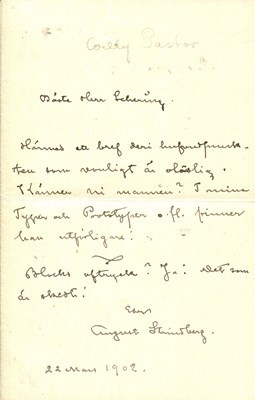 Willy Pastor
Bäste Herr Schering.
Härmed ett bref deri hufvudpunk-
ten som vanligt är oläslig.
Känner ni mannen? I mina
Typer och Prototyper o.fl. finner
han utförligare!
Blocks aftryck? Ja! Det som
är skedt!
Eder
August Strindberg.
22 Mars 1902.